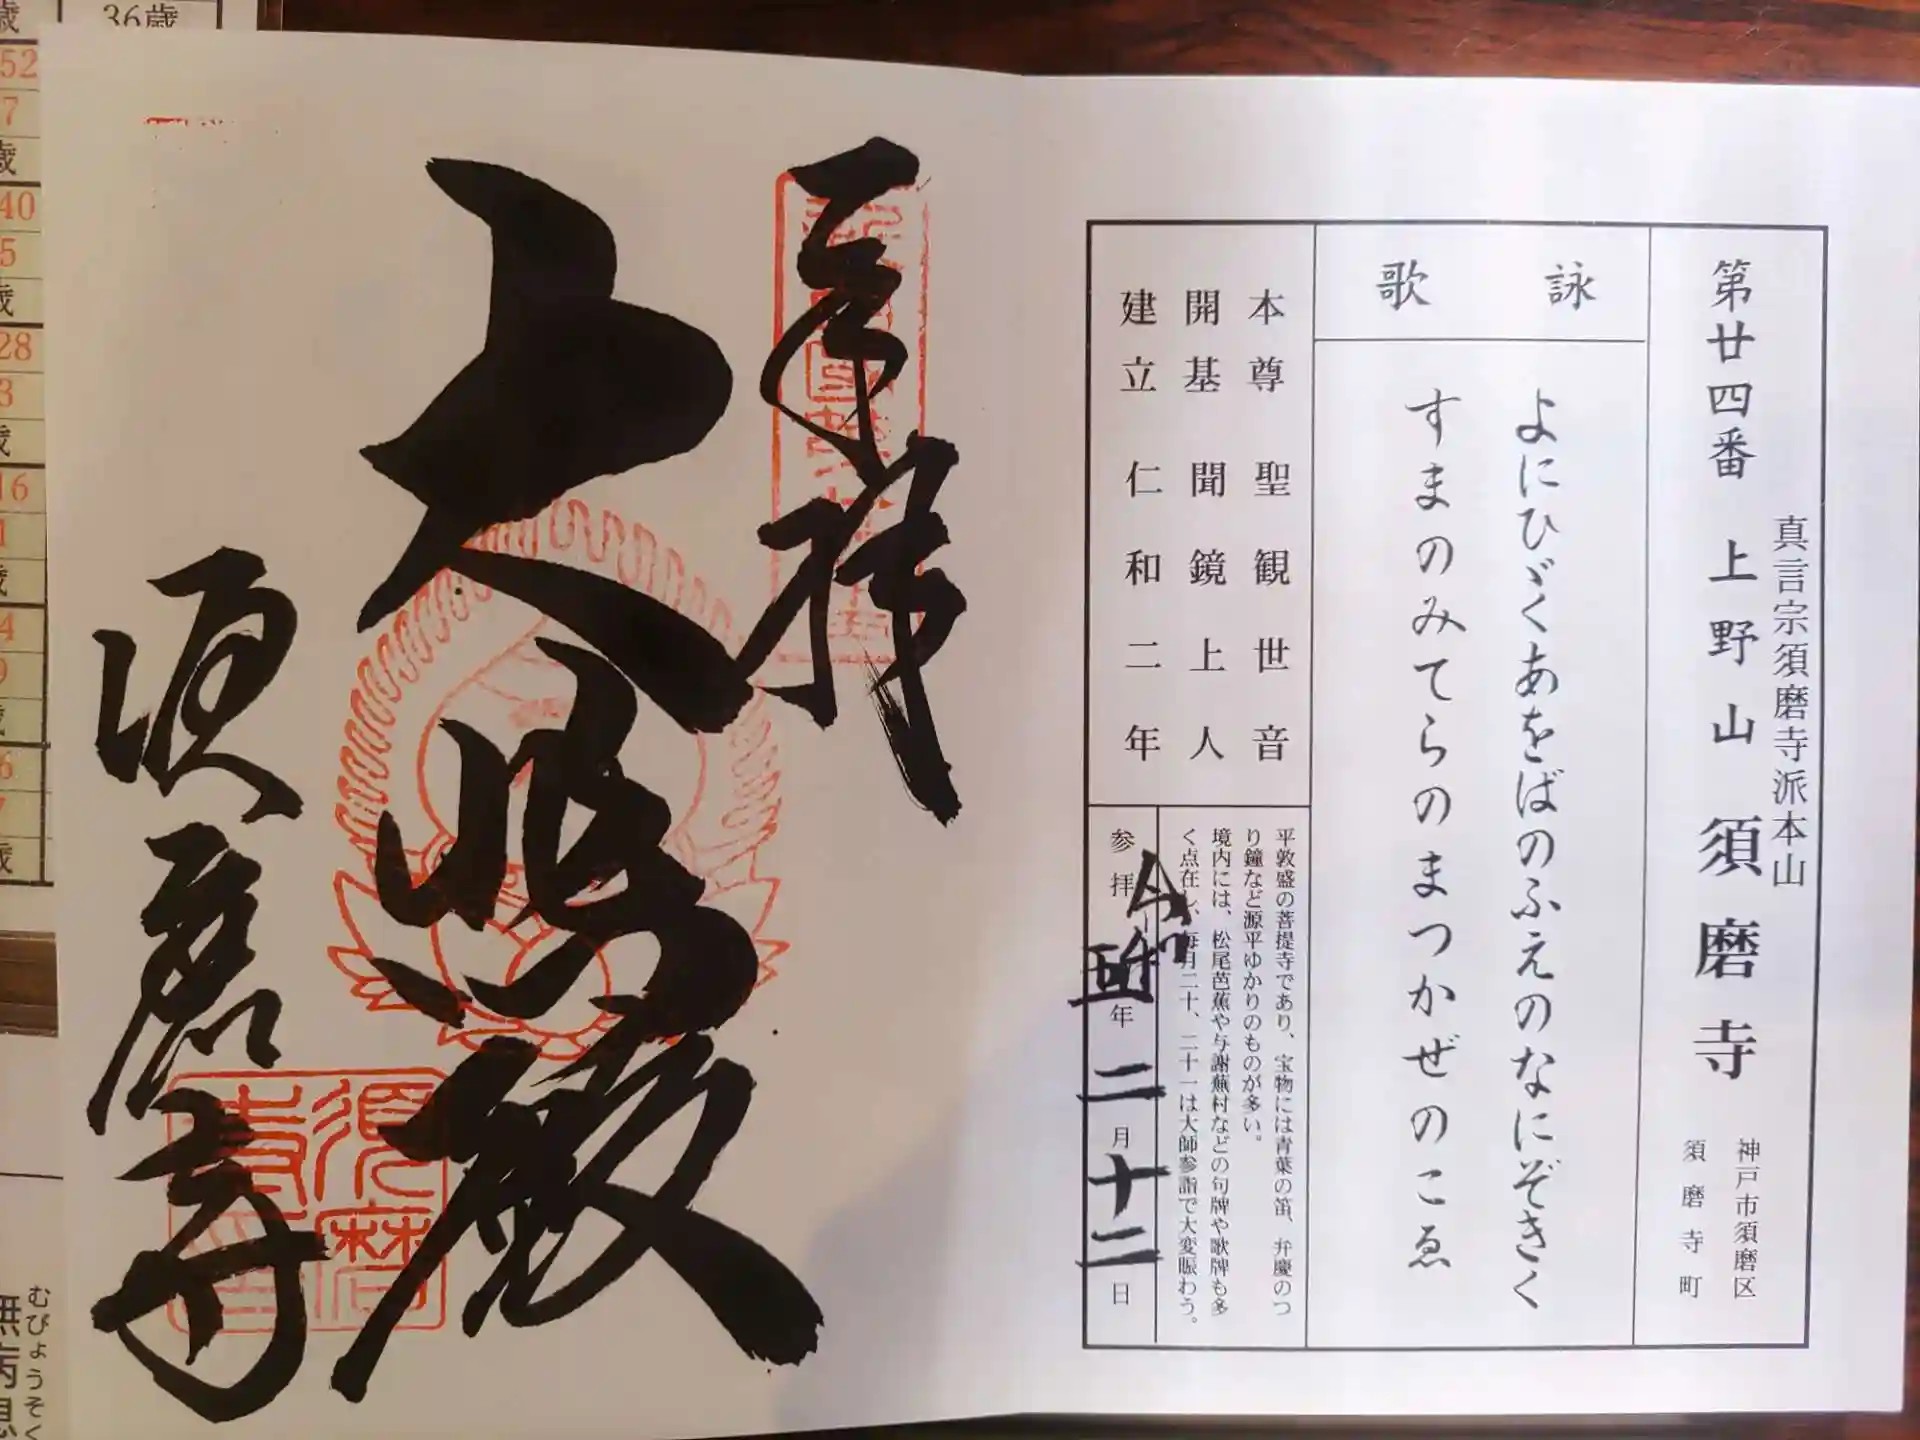 真言宗須磨寺派本山
第廿四番 上野山 須磨寺
神戸市須磨区
須磨寺町
詠歌
よにひゞくあをばのふえのなにぞきく
すまのみてらのまつかぜのこゑ
本尊 聖観世音
開基 聞鏡上人
建立 仁和二年
平敦盛の菩提寺であり、宝物には青葉の笛、弁慶のつ
り鐘など源平ゆかりのものが多い。
境内には、松尾芭蕉や与謝蕪村などの句牌や歌牌も多
く点在し、毎月二十、二十一は大師参詣で大変賑わう。
参拝 令和 年 二月 十二日
奉拝
大師殿
須磨寺
須磨寺
36歳
52
7
歳
40
5
歳
28
3
歳
16
1
歳
4
9
歳
6
7
歳
むびょうそく
無病息